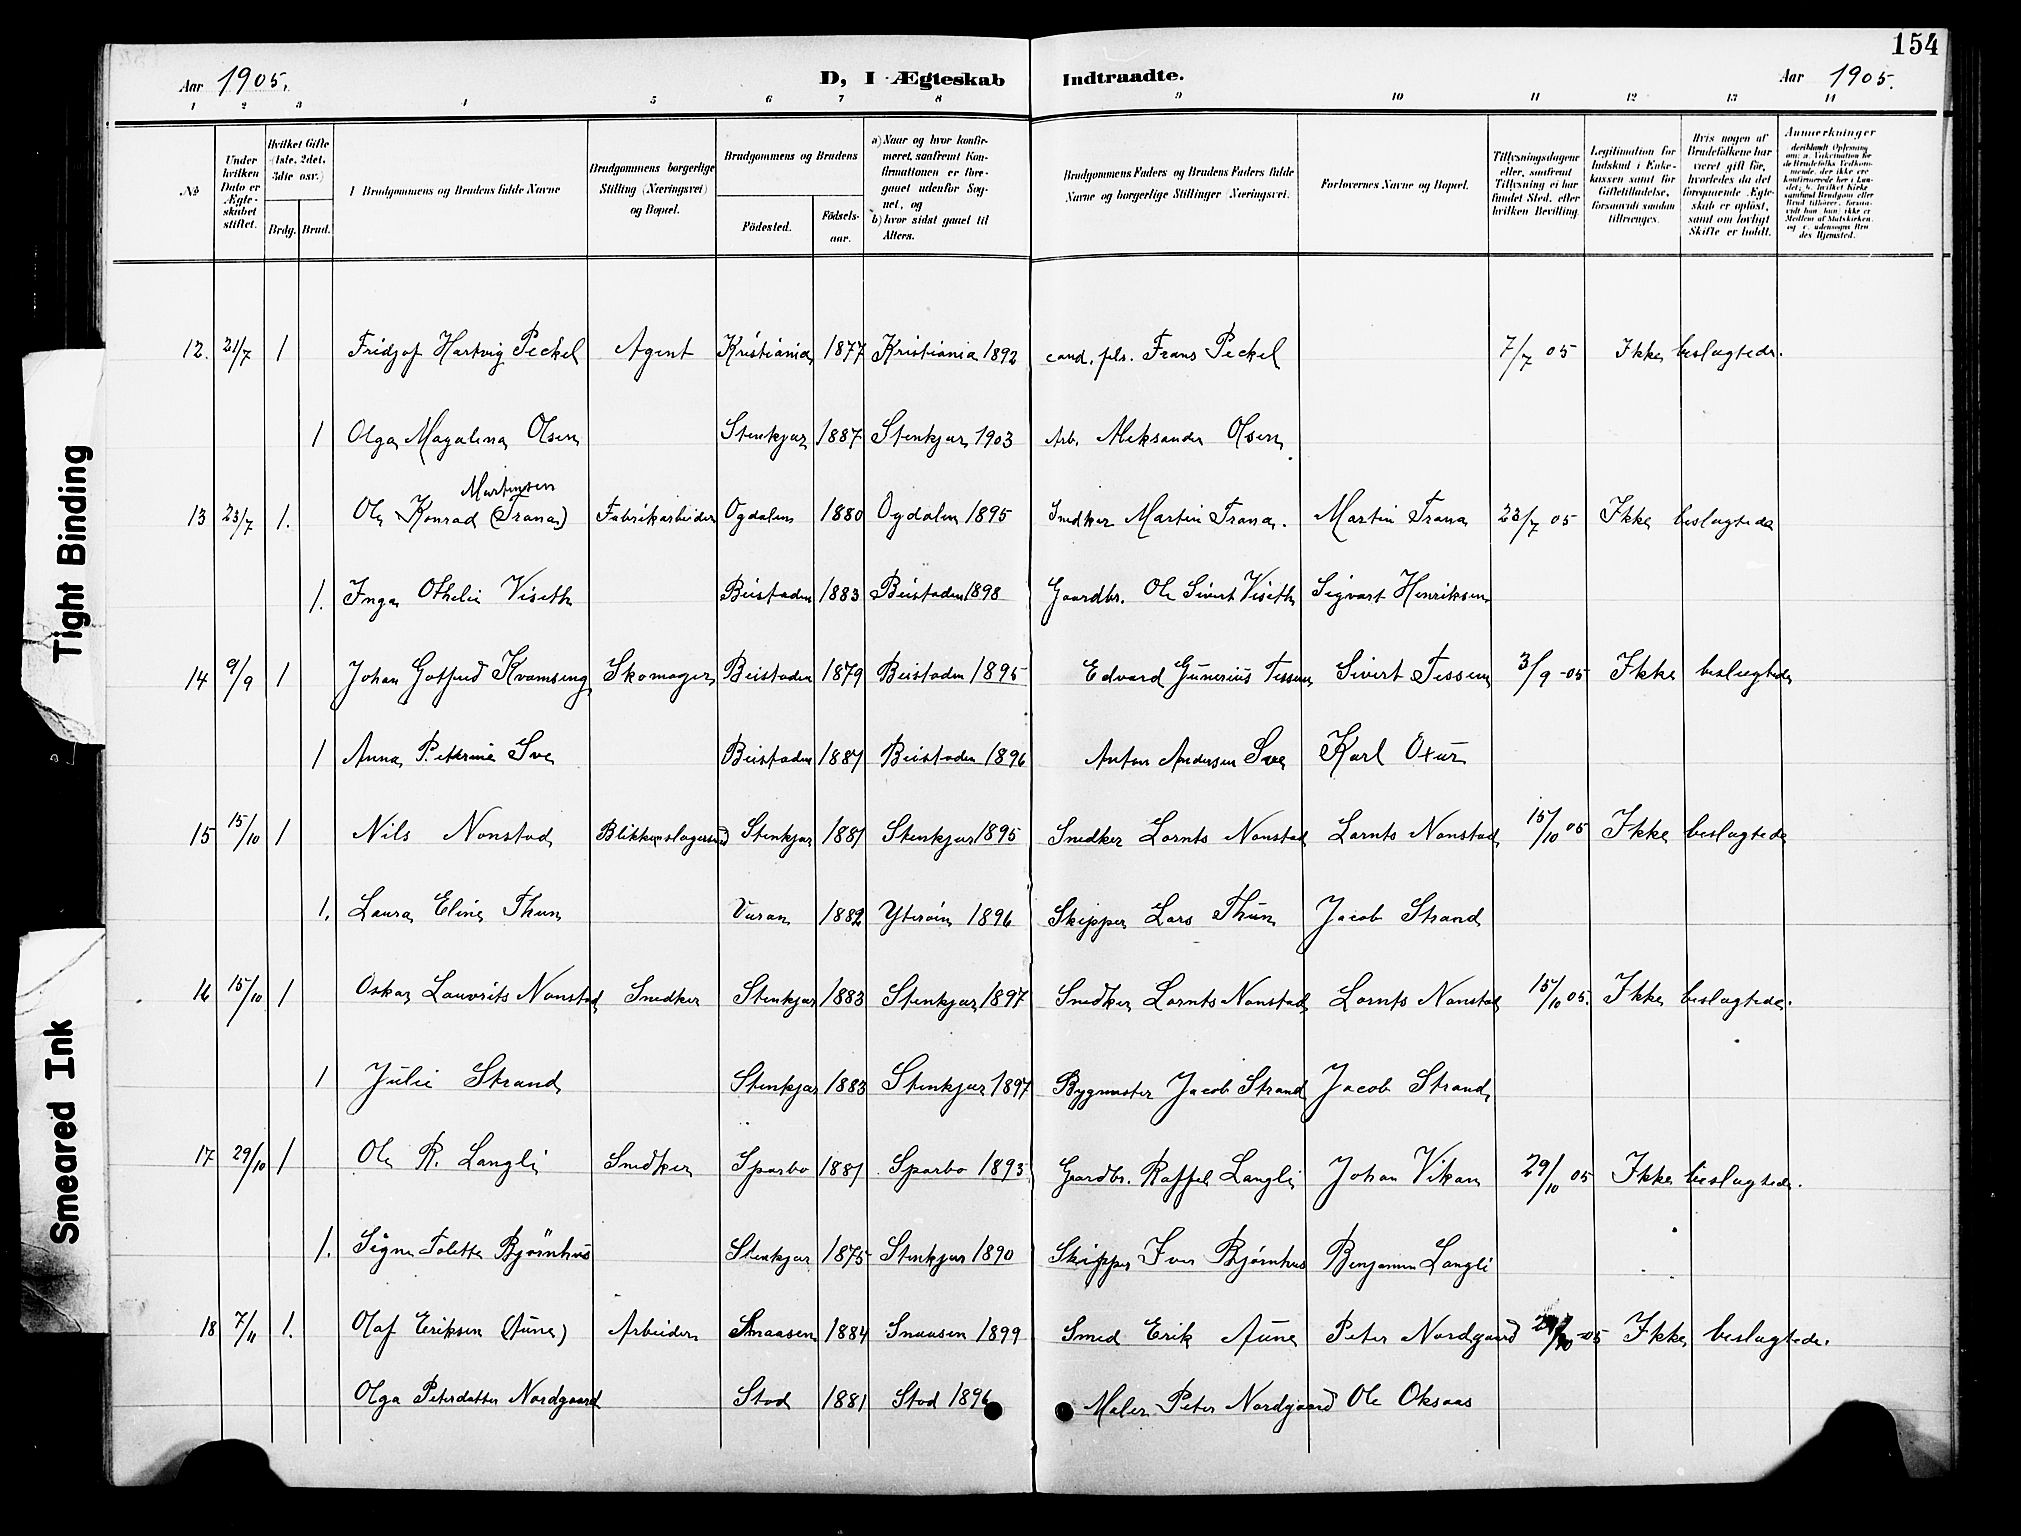 154
Aar 1905. D, I Ægteskab Indtraadte. Aar 1905.
1 2 3 4 5 6 7 8 9 10 11 12 13 14
No
Under hvilken Dato er Ægteskabet stiftet.
Hvilket Gifte (1ste, 2det, 3die osv.)
Brdg. Brud.
Brudgommens og Brudens fulde Navne
Brudgommens borgerlige Stilling (Næringsvei) og Bopæl.
Brudgommens og Brudens
Födested. Födselsaar.
a) Naar og hvor konfirmeret, saafremt Konfirmationen er foregaaet udenfor Sognet, og
b) hvor sidst gaaet til Alters.
Brudgommens Faders og Brudens Faders fulde Navne og borgerlige Stillinger (Næringsvei).
Forlovernes Navne og Bopæl.
Tillysningsdagene eller, saafremt Tillysning ei har fundet Sted, efter hvilken Bevilling.
Legitimation for Indskud i Enkekassen samt for Giftetilladelse, forsaavidt saadan tiltrænges.
Hvis nogen af Brudefolkene har været gift för, hvorledes da det foregaaende Ægteskab er oplöst, samt om lovligt Skifte er holdt.
Anmerkninger
12. 21/7 1 Fridjof Hartvig Peckel Agent Kristiania 1877 Kristiania 1892 cand. phs. Frans Peckel 7/7 05 Ikke beslægtede.
1 Olga Magalina Olsen Stenkjær 1887 Stenkjær 1903 Arb. Aleksander Olsen
Martinsen
13 23/7 1. Ole Konrad (Trana) Fabrikarbeider Ogdalen 1880 Ogdalen 1895 Snedker Martin Trana. Martin Trana 23/7 05 Ikke beslægtede
1. Inga Othelie Viseth Beistaden 1883 Beistaden 1898 Gaardbr. Ole Sivert Viseth Sigvart Henriksen
14 9/9 1 Johan Gotfred Kvamseng Skomager Beistaden 1879 Beistaden 1895 Edvard Gunerius Tessem Sivert Tessem 3/9 -05 Ikke beslægtede
1 Anna Peterine Sve Beistaden 1881 Beistaden 1896 Anton Andersen Sve Karl Oxur
15 15/10 1 Nils Nonstad Blikkenslagersvend Stenkjær 1881 Stenkjær 1895 Snedker Lornts Nonstad Lornts Nonstad 15/10 05 Ikke beslægtede
1. Laura Eline Thun Vuran 1882 Yterøin 1896 Skipper Lars Thun Jacob Strand
16 15/10 1 Oskar Lauvrits Nonstad Snedker Stenkjær 1883 Stenkjær 1897 Snedker Lornts Nonstad Lornts Nonstad 15/10 05. Ikke beslægtede.
1 Julie Strand Stenkjær 1883 Stenkjær 1897 Bygmester Jacob Strand Jacob Strand
17 29/10 1 Ole R. Langli Snedker Sparbo 1881 Sparbo 1895 Gaardbr. Raffel Langli Johan Vikan 29/10 05 Ikke beslægtede.
1. Signe Tolette Bjørnhus Stenkjær 1875 Stenkjær 1890 Skipper Iver Bjørnhus Benjamin Langli
18 7/11 1. Olaf Eriksen (Aune) Arbeider Snaasen 1884 Snaasen 1899 Smed Erik Aune Peter Nordgaard 29/10 -05 Ikke beslægtede.
Olga Petersdatter Nordgaard Stod 1881 Stod 1896 Maler Peter Nordgaard Ole Oksaas
Tight Binding
Smeared Ink